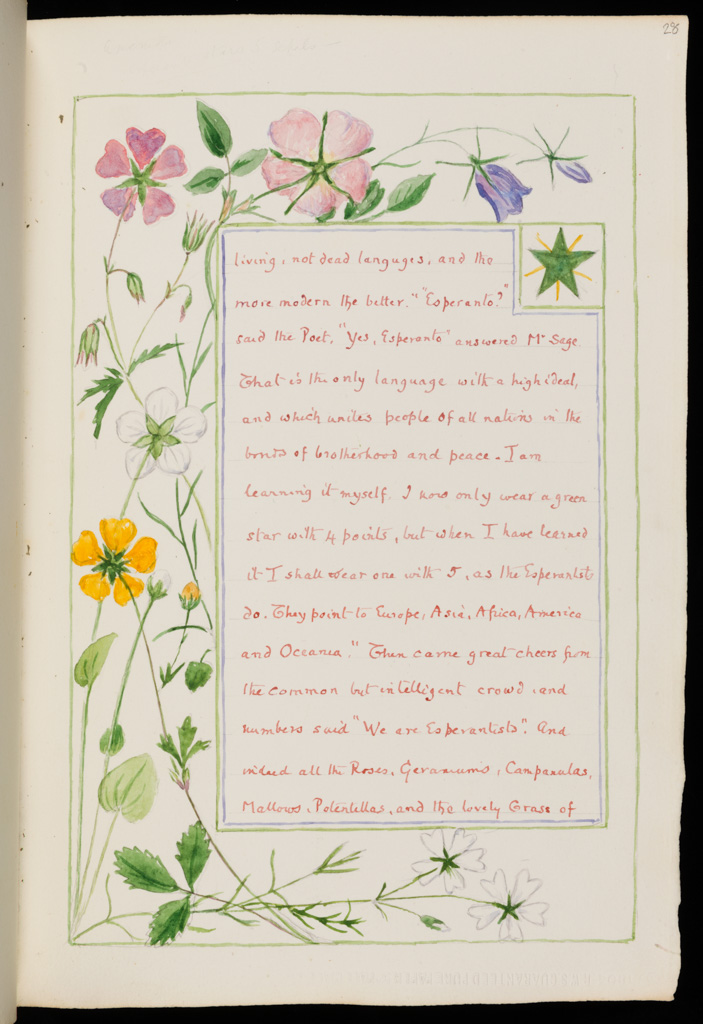 28
living, not dead languges, and the
more modern the better." "Esperanto?"
said the Poet, "Yes, Esperanto" answered Mr Sage.
That is the only language with a high ideal,
and which unites people of all nations in the
bonds of brotherhood and peace - I am
learning it myself. I now only wear a green
star with 4 points, but when I have learned
it I shall wear one with 5, as the Esperantists
do. They point to Europe, Asia, Africa, America
and Oceania." Then came great cheers from
the common but intelligent crowd, and
numbers said "We are Esperantists". And
indeed all the Roses, Geraniums, Campanulas,
Mallows, Potentillas, and the lovely Grass of